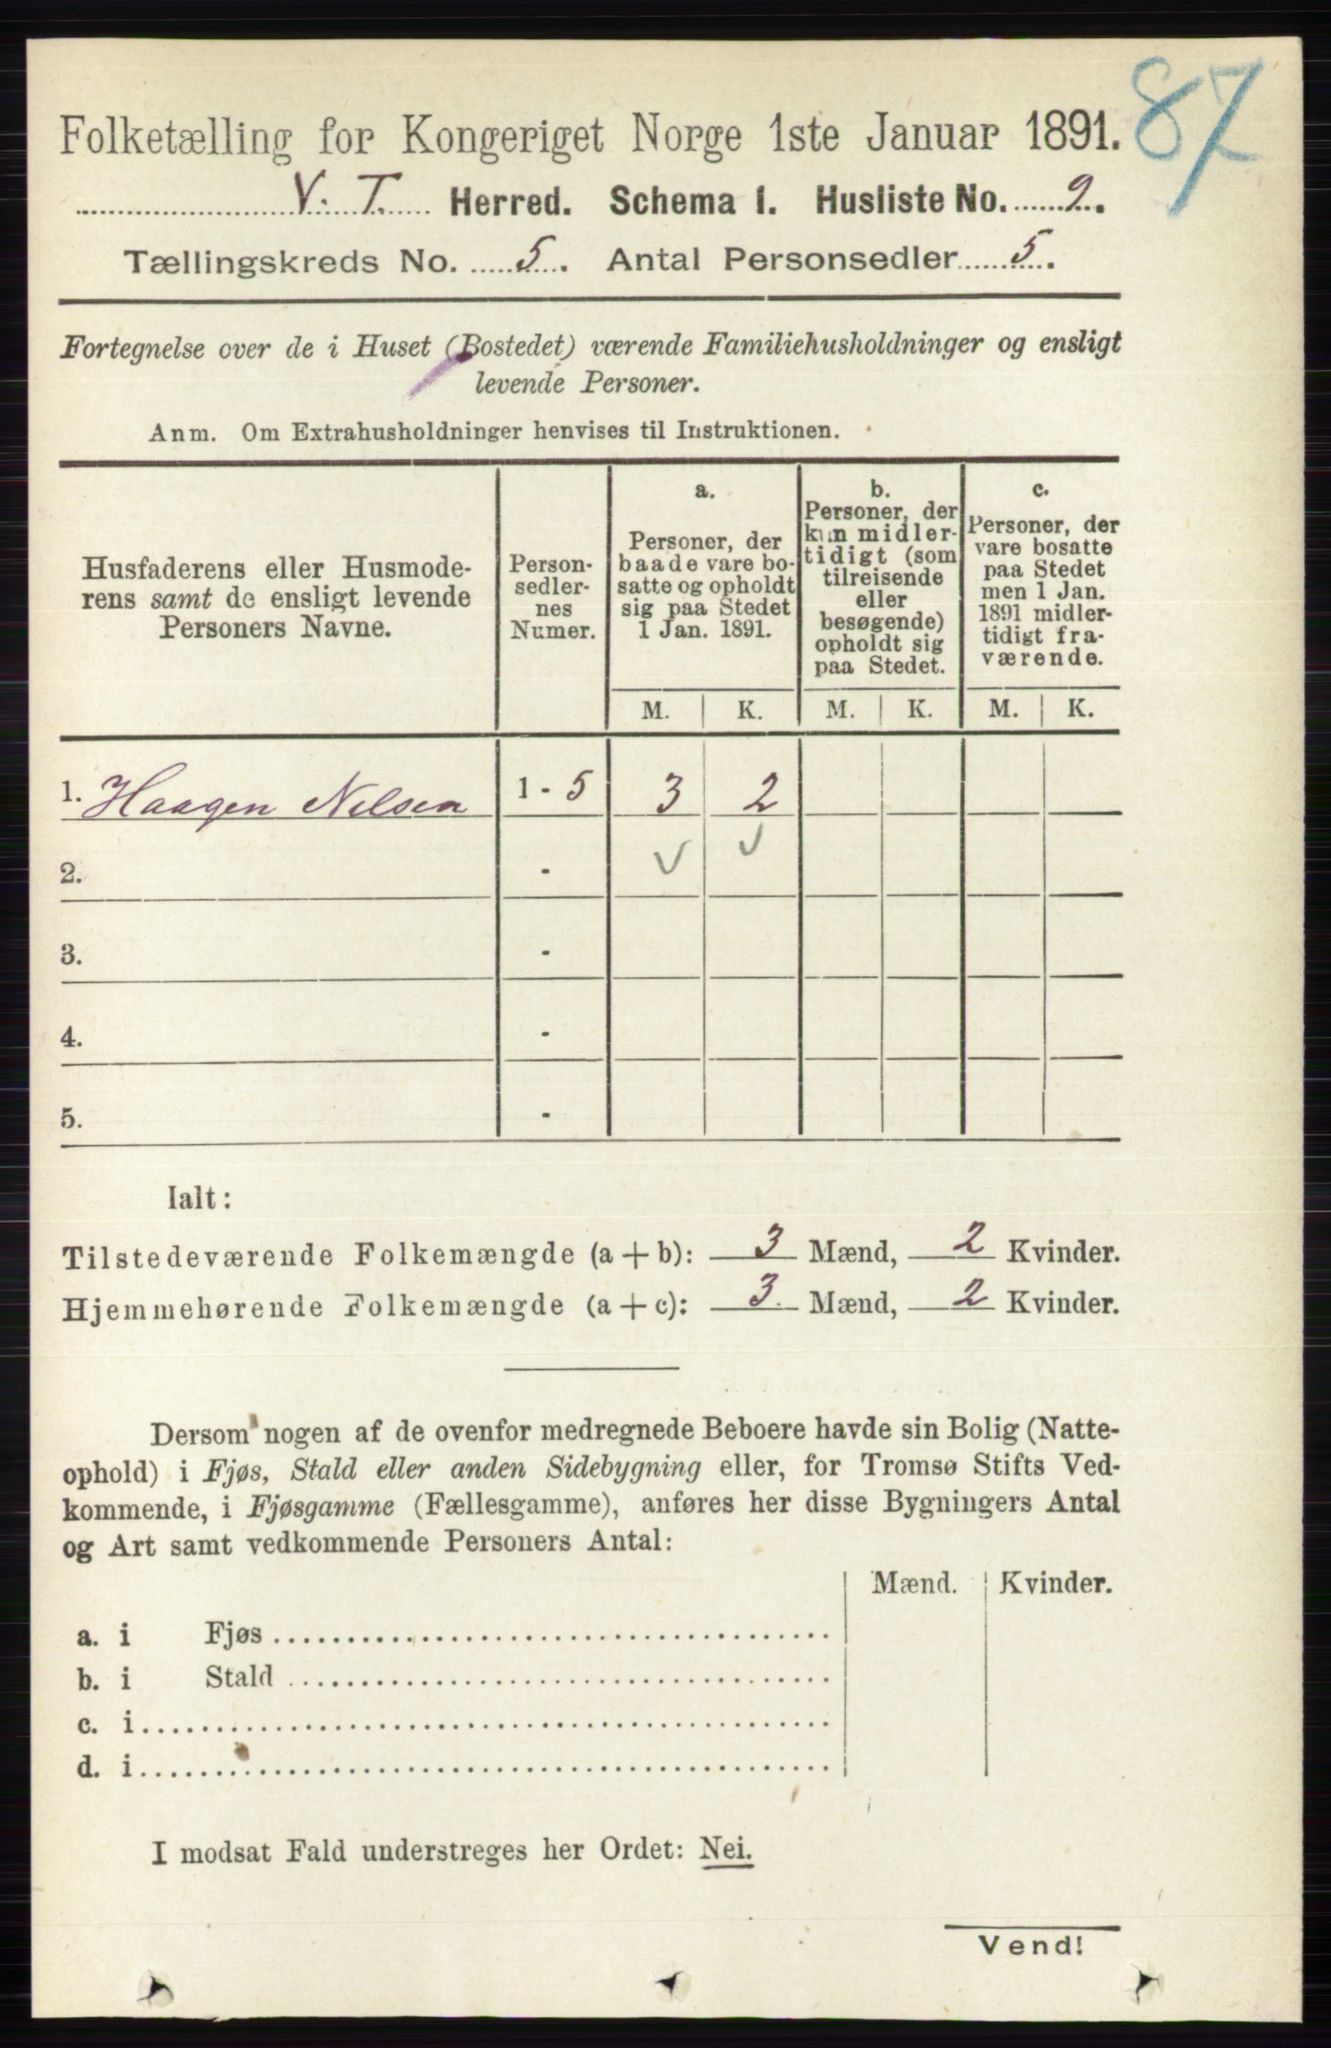 87
Folketælling for Kongeriget Norge 1ste Januar 1891.
V. T. Herred. Schema I. Husliste No. 9.
Tællingskreds No. 5. Antal Personsedler 5.
Fortegnelse over de i Huset (Bostedet) værende Familiehusholdninger og ensligt
levende Personer.
Anm. Om Extrahusholdninger henvises til Instruktionen.
Husfaderens eller Husmode-
rens samt de ensligt levende
Personers Navne.
Person-
sedler-
nes
Numer.
a.
Personer, der
baade vare bo-
satte og opholdt
sig paa Stedet
1 Jan. 1891.
b.
Personer, der
kun midler-
tidigt (som
tilreisende
eller
besøgende)
opholdt sig
paa Stedet.
c.
Personer, der
vare bosatte
paa Stedet
men 1 Jan.
1891 midler-
tidigt fra-
værende.
M. K. M. K. M. K.
1. Haagen Nelsen 1 - 5 3 2
2. -
3. -
4. -
5. -
Ialt:
Tilstedeværende Folkemængde (a + b): 3 Mænd, 2 Kvinder.
Hjemmehørende Folkemængde (a + c): 3. Mænd, 2 Kvinder.
Dersom nogen af de ovenfor medregnede Beboere havde sin Bolig (Natte-
ophold) i Fjøs, Stald eller anden Sidebygning eller, for Tromsø Stifts Ved-
kommende, i Fjøsgamme (Fællesgamme), anføres her disse Bygningers Antal
og Art samt vedkommende Personers Antal:
Mænd. Kvinder.
a. i Fjøs
b. i Stald
c. i
d. i
I modsat Fald understreges her Ordet: Nei.
Vend!